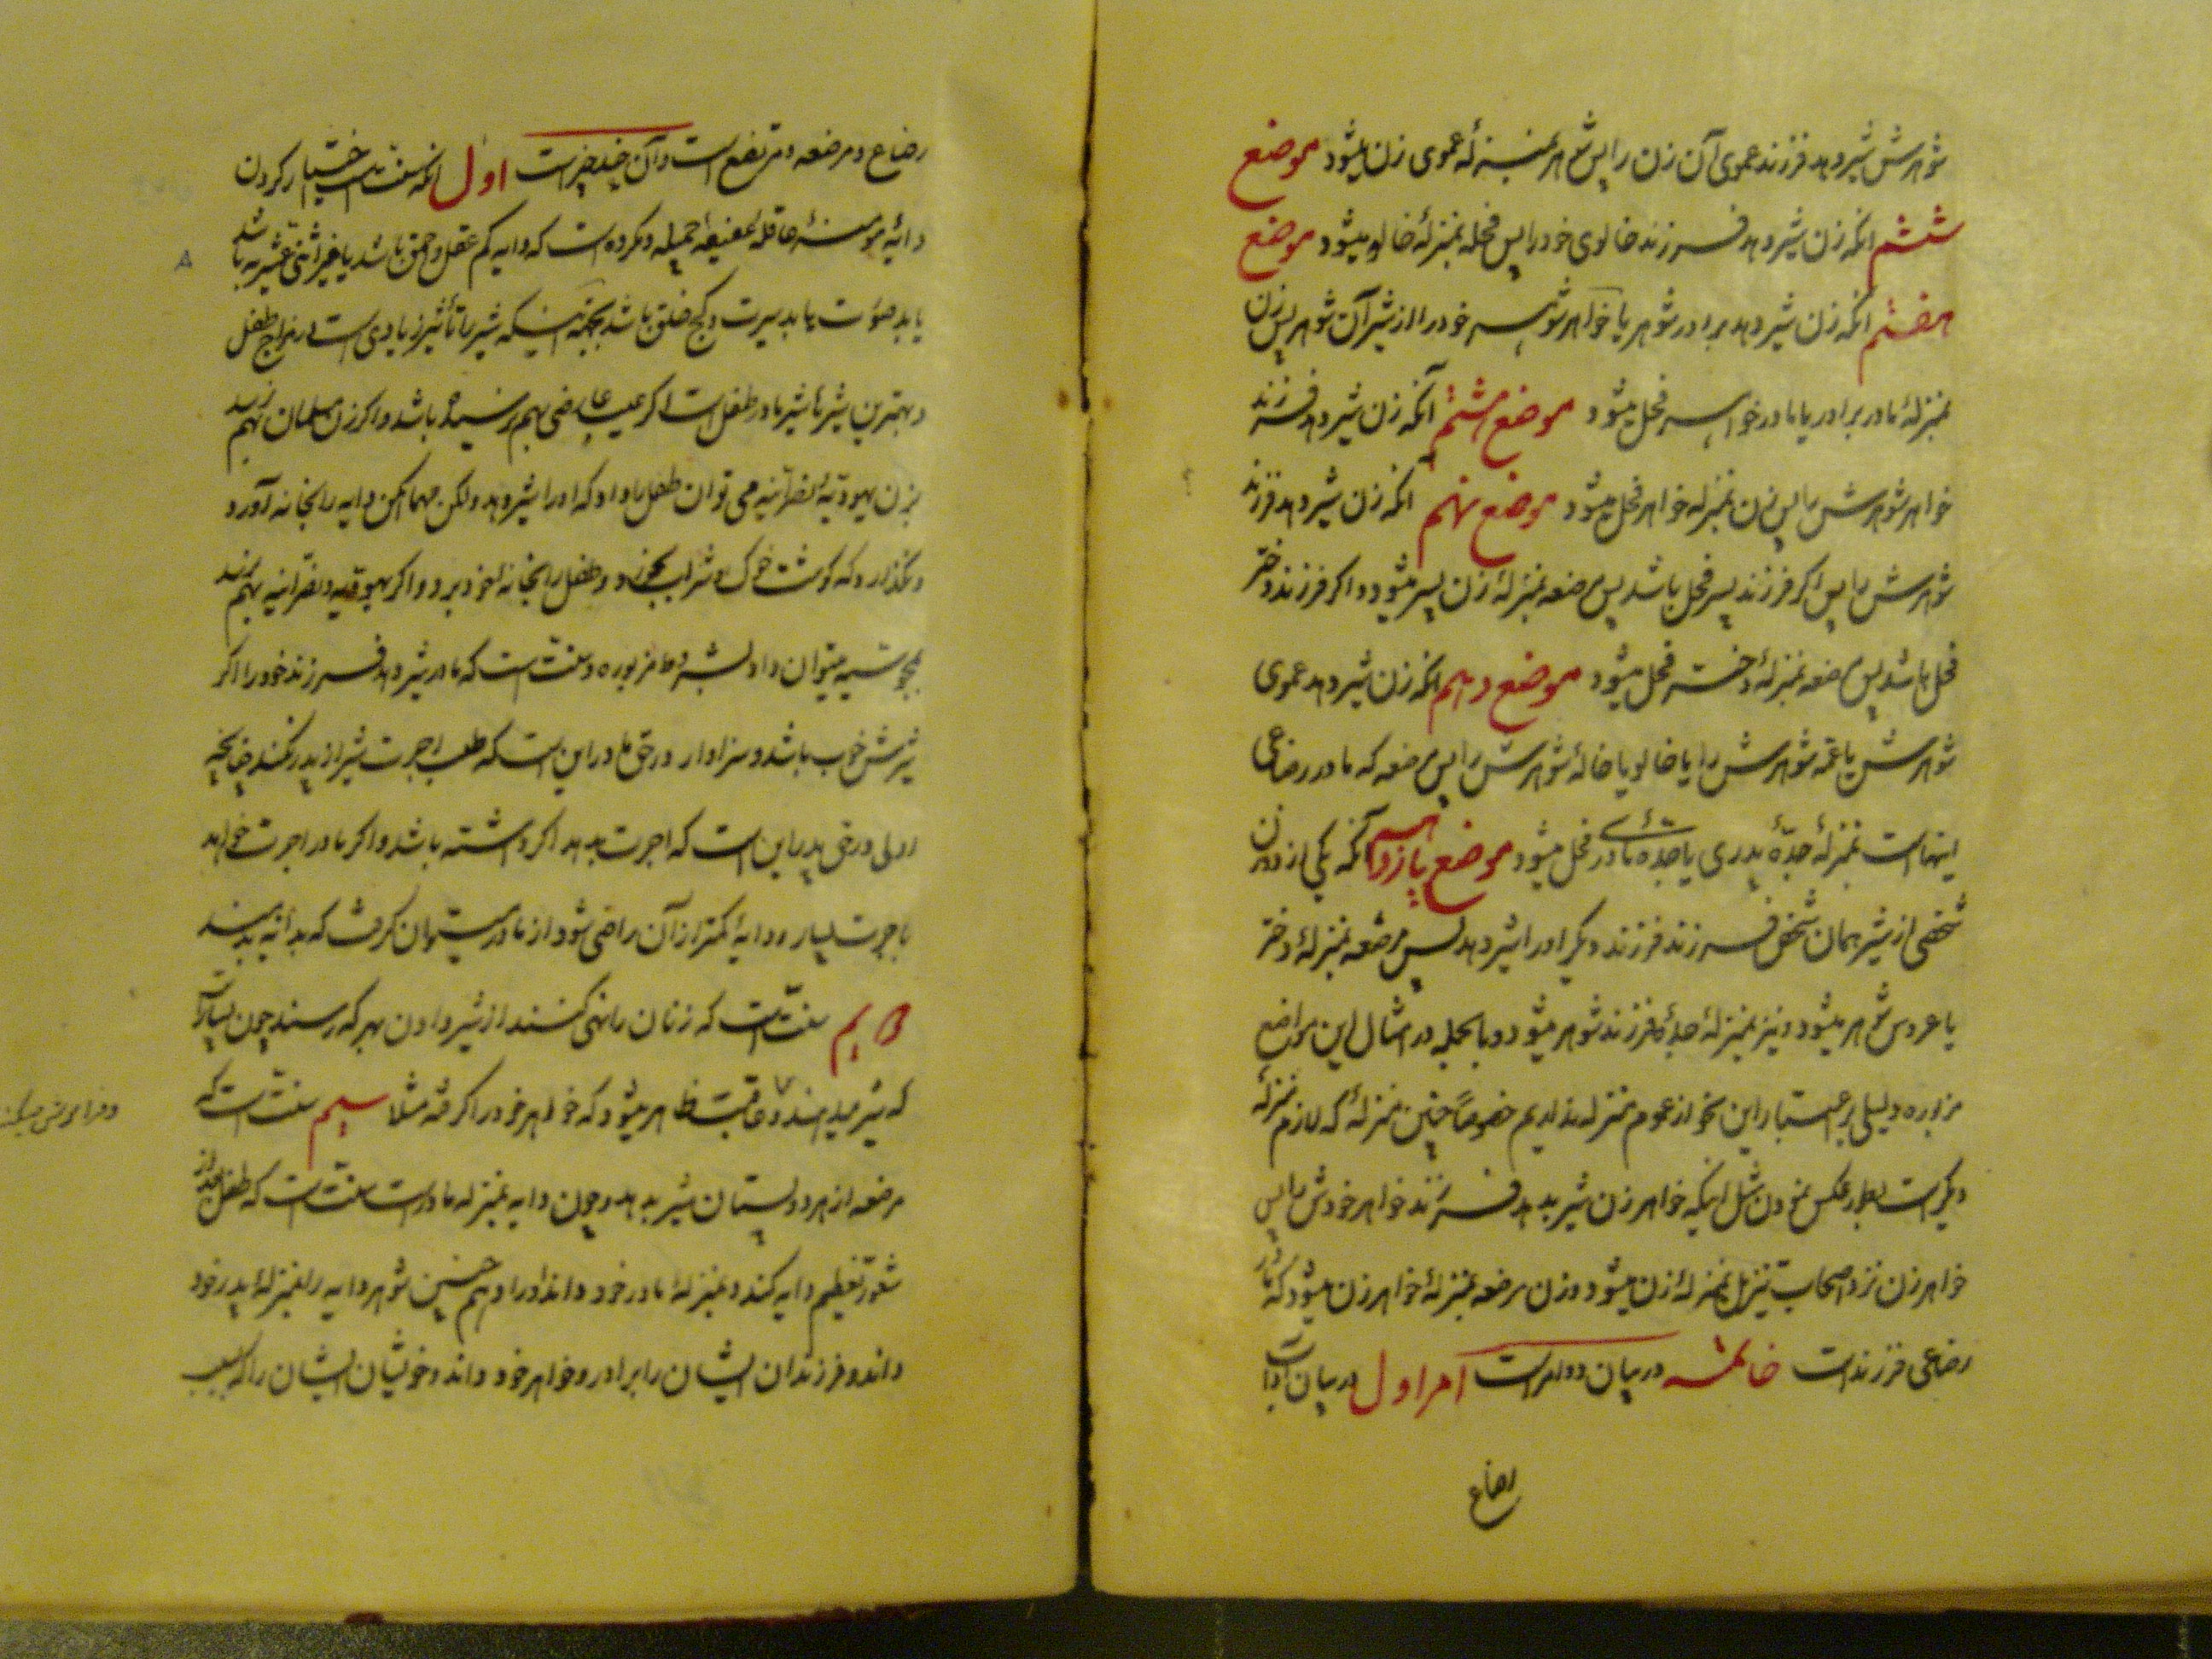 شوهرش شیر دهد فرزند عموی آن زن را پس شوهر بمنزلهٔ عموی زن میشود موضع
ششم آنکه زن شیر دهد فرزند خالوی خود را پس فحل بمنزلهٔ خالو میشود موضع
هفتم آنکه زن شیر دهد برادر شوهر یا خواهر شوهر خود را از شیر آن شوهر پس زن
بمنزلهٔ مادر برادر یا مادر خواهر فحل میشود موضع هشتم آنکه زن شیر دهد فرزند
خواهر شوهرش را پس زن بمنزله خواهر فحل میشود موضع نهم آنکه زن شیر دهد فرزند
شوهرش را پس اکر فرزند پسر فحل باشد پس مرضعه بمنزلهٔ زن پسر میشود و اکر فرزند دختر
فحل باشد پس مرضعه بمنزلهٔ دختر فحل میشود موضع دهم آنکه زن شیر دهد عموی
شوهرش یا عمّه شوهرش را یا خالو یا خالهٔ شوهرش را پس مرضعه که مادر رضاعی
اینهاست بمنزلهٔ جدّهٔ پدری یا جدّه مادری فحل میشود موضع یازدهم آنکه یکی از دو زن
شخصی از شیر همان شخص فرزند فرزند دیکر او را شیر دهد پس مرضعه بمنزلهٔ دختر
یا عروس شوهر میشود و نیز بمنزلهٔ جدّهٔ فرزند شوهر میشود و بالجمله در امثال این مواضع
مزبوره دلیلی بر اعتبار این نحو از عموم منزله نداریم خصوصاً چنین منزلهٔ که لازم منزلهٔ
دیکر است بطور عکس نمودن مثل اینکه خواهر زن شیر بدهد فرزند خواهر خودش را پس
خواهر زن نزد اصحاب تنزیل بمنزلهٔ زن میشود و زن مرضعه بمنزلهٔ خواهر زن میشود که مادر
رضاعی فرزند است خاتمه در بیان دو امر است امر اول در بیان آداب
رضاع
رضاع و مرضعه و مرتضع است و آن چند چیز است اول آنکه سنت است اختیار کردن
دایهٔ مؤمنهٔ عاقلهٔ عفیفهٔ جمیله و مکروه است که دایه کم عقل و احمق باشد یا غیر اثنی عشریه باشد
یا بد صورت یا بد سیرت و کج خلق باشد بجهة اینکه شیر را تأثیر زیادی است در مزاج طفل
و بهترین شیرها شیر مادر طفل است اکر عیب عارضی بهم نرسیده باشد و اکر زن مسلمان بهم نرسد
بزن یهودیّه و نصرانیه می توان طفل را داد که او را شیر دهد ولکن مهما امکن دایه را بخانه آورد
و نکذارد که کوشت خوک و شراب بخورد و طفل را بخانهٔ خود برد و اکر یهودیه و نصرانیه بهم نرسد
بمجوسیه میتوان داد بشروط مزبوره و سنت است که مادر شیر دهد فرزند خود را اکر
شیرش خوب باشد و سزاوار در حق مادر این است که طلب اجرت شیر از پدر نکند چنانچه
اولی در حق پدر این است که اجرت بدهد اکر داشته باشد و اکر مادر اجرت خواهد
باجرت بسیار و دایهٔ کمتر از آن راضی شود از مادر میتوان کرفت که بدایه بدهند
دویم سنت است که زنان را نهی کنند از شیر دادن بهر که رسند چون بسیار است
که شیر میدهند و عاقبت ظاهر میشود که خواهر خود را کرفته مثلا سیم سنت است که
و فراموش میکنند
مرضعه از هر دو پستان شیر بدهد و چون دایه بمنزله مادر است سنت است که طفل بعد از
شعور تعظیم دایه کند و بمنزلهٔ مادر خود داند او را و هم چنین شوهر دایه را بمنزلهٔ پدر خود
داند و فرزندان ایشان را برادر و خواهر خود داند و خویشان ایشان را که بسبب